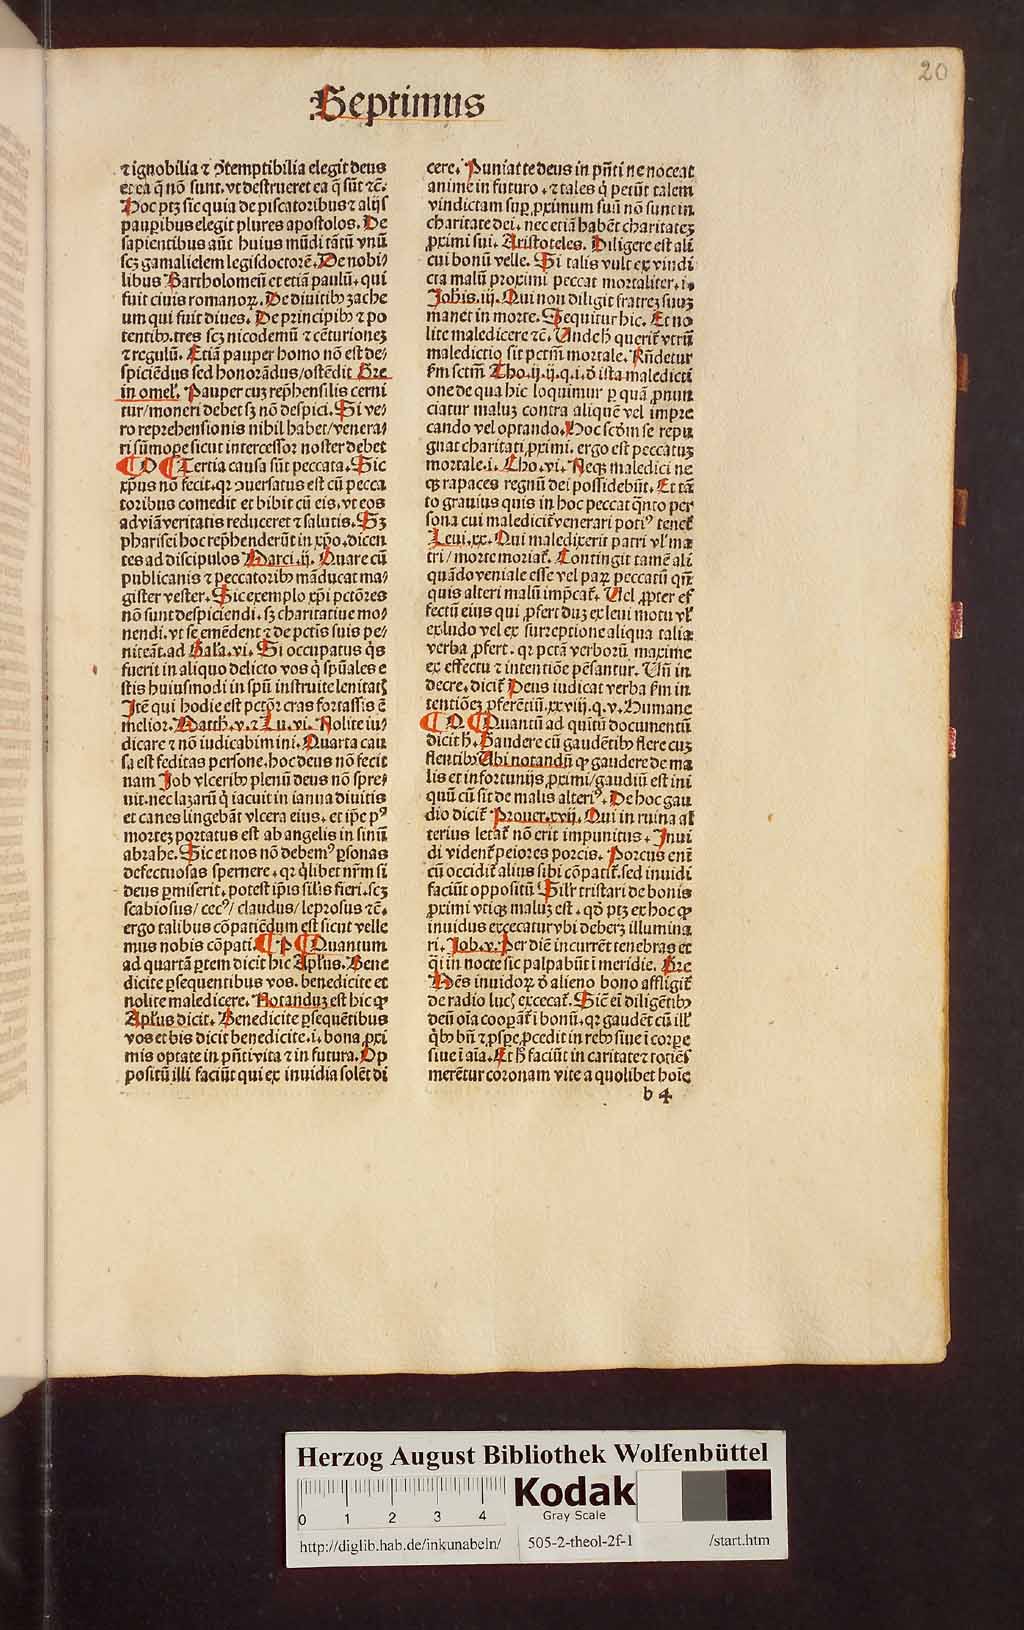 20
Septimus
⁊ ignobilia ⁊ ꝯtemptibilia elegit deus
et ea q̄ nō sunt. vt destrueret ea q̄ sūt ⁊c̄.
Hoc ptꝫ sic quia de piscatoribus ⁊ alijs
pauꝑibus elegit plures apostolos. De
sapientibus aūt huius mūdi tātū vnū
scꝫ gamalielem legisdoctorē. De nobi⸗
libus Bartholomeū et etiā paulū. qui
fuit ciuis romanoꝝ. De diuitibꝰ zache
um qui fuit diues. De principibꝰ ⁊ po
tentibꝰ. tres scꝫ nicodemū ⁊ cēturionez
⁊ regulū. Etiā pauper homo nō est de⸗
spiciēdus sed honorādus/ ostēdit Gre
in omel̕. Pauper cuz rep̄hensilis cerni
tur/ moneri debet sꝫ nō despici. Si ve⸗
ro reprehensionis nihil habet/ venera⸗
ri sūmope sicut intercessor noster debet
¶ O ¶ Tertia causa sūt peccata. Sic
xp̄us nō fecit. qꝛ ꝯuersatus est cū pecca
toribus comedit et bibit cū eis. vt eos
ad viā veritatis reduceret ⁊ salutis. Sꝫ
pharisei hoc rep̄henderūt in xp̄o. dicen
tes ad discipulos Marci. ij. Quare cū
publicanis ⁊ peccatoribꝰ māducat ma⸗
gister vester. Sic exemplo xp̄i pctōres
nō sunt despiciendi. sꝫ charitatiue mo⸗
nendi. vt se emēdent ⁊ de pctīs suis pe⸗
niteāt. ad Gala. vi. Si occupatus q̇s
fuerit in aliquo delicto vos q̇ spūales e
stis huiusmodi in spū instruite lenitatꝭ
Itē qui hodie est pctōr cras fortassis ē
melior. Matth. v. ⁊ Lu. vi. Nolite iu⸗
dicare ⁊ nō iudicabimini. Quarta cau
sa est feditas persone. hoc deus nō fecit
nam Job vlceribꝰ plenū deus nō spre⸗
uit. nec lazarū q̇ iacuit in ianua diuitis
et canes lingebāt vlcera eius. et ip̄e pꝰ
mortez portatus est ab angelis in sinū
abrahe. Sic et nos nō debemꝰ ꝑsonas
defectuosas spernere. qꝛ q̇libet nr̄m si
deus ꝑmiserit. potest ip̄is sil̕is fieri. scꝫ
scabiosus/ cecꝰ/ claudus/ leprosus ⁊c̄.
ergo talibus cōpatiēdum est sicut velle
mus nobis cōpati. ¶ P ¶ Quantum
ad quartā ꝑtem dicit hic Apl̕us. Bene
dicite ꝑsequentibus vos. benedicite et
nolite maledicere. Notanduꝫ est hic ꝙ
Apl̕us dicit. Benedicite ꝑsequētibus
vos et bis dicit benedicite. i. bona ꝓxi
mis optate in pn̄ti vita ⁊ in futura. Op
positū illi faciūt qui ex inuidia solēt di
cere. Puniat te deus in pn̄ti ne noceat
anime in futuro. ⁊ tales q̇ petūt talem
vindictam suꝑ ꝓximum suū nō sunt in
charitate dei. nec etiā habēt charitatez
ꝓximi sui. Aristoteles. Diligere est ali
cui bonū velle. Si talis vult ex vindi
cta malū proximi peccat mortaliter. i.
Johīs. iij. Qui non diligit fratreꝫ suuꝫ
manet in morte. Sequitur hic. Et no
lite maledicere ⁊c̄. Unde ħ querit̄ vtrū
maledictio sit pctm̄ mortale. Rn̄detur
ẜm sctm̄ Tho. ij. ij. q. i. ꝺ̄ ista maledicti
one de qua hic loquimur ꝑ quā ꝓnun
ciatur maluꝫ contra aliquē vel impre
cando vel optando. Hoc scd̄m se repu
gnat charitati ꝓximi. ergo est peccatuꝫ
mortale. i. Cho. vi. Neqꝫ maledici ne
qꝫ rapaces regnū dei possidebūt. Et tā
to grauius quis in hoc peccat q̄nto per
sona cui maledicit̄ venerari potiꝰ tenet̄
Leui. xx. Qui maledixerit patri vl̕ ma
tri/ morte moriat̄. Contingit tamē ali
quādo veniale esse vel paꝝ peccatū qn̄
quis alteri malū imp̄cat̄. Uel ꝓpter ef
fectū eius qui ꝓfert duꝫ ex leui motu vl̕
ex ludo vel ex surreptione aliqua talia
verba ꝓfert. qꝛ pctā verborū maxime
ex effectu ⁊ intentiōe pēsantur. Un̄ in
decre. dicit̄ Deus iudicat verba ẜm in
tentiōeꝫ ꝓferētiū. xxviij. q. v. Humane
¶ Q ¶ Quantū ad quitū documentū
dicit ħ. Gaudere cū gaudētibꝰ flere cuꝫ
flentibꝰ Ubi notandū ꝙ gaudere de ma
lis et infortunijs ꝓximi/ gaudiū est ini
quū cū sit de malis alteriꝰ. De hoc gau
dio dicit̄ Prouer. xvij. Qui in ruina al
terius letat̄ nō erit impunitus. Inui
di vident̄ peiores porcis. Porcus eni
cū occidit̄ alius sibi cōpatit̄. sed inuidi
faciūt oppositū Sil̕r tristari de bonis
ꝓximi vtiqꝫ maluꝫ est. qd̄ ptꝫ ex hoc ꝙ
inuidus excecatur vbi deberꝫ illumina
ri. Job. v. Per diē incurrēt tenebras et
q̄i in nocte sic palpabūt ī meridie. Gre
Mēs inuidoꝝ ꝺ̄ alieno bono affligit̄
de radio lucꝭ excecat̄. Sic̄ ei diligētibꝰ
deū oīa cooꝑāt̄ ī bonū. qꝛ gaudēt cū ill̕
q̇bꝰ bn̄ ⁊ ꝓsꝑe ꝓcedit in rebꝰ siue ī corꝑe
siue ī aīa. Et ħ faciūt in caritate ⁊ totiēs
merētur coronam vite a quolibet hoīe
b 4
Herzog August Bibliothek Wolfenbüttel
0 1 2 3 4
Kodak
Gray Scale
http://diglib.hab.de/inkunabeln/ 505-2-theol-2f-1 /start.htm